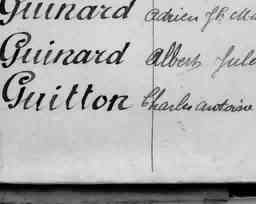 Guinard Adrien J.h. Ma
Guinard Albert Jule
Guitton Charles Antoine